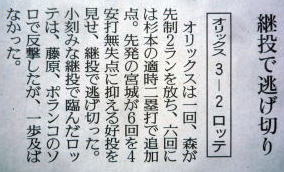 継投で逃げ切り
オリックス 3―2 ロッテ
オリックスは一回、森が
先制2ランを放ち、六回に
は杉本の適時二塁打で追加
点。先発の宮城が6回を4
安打無失点に抑える好投を
見せ、継投で逃げ切った。
小刻みな継投で臨んだロッ
テは、藤原、ポランコのソ
ロで反撃したが、一歩及ば
なかった。